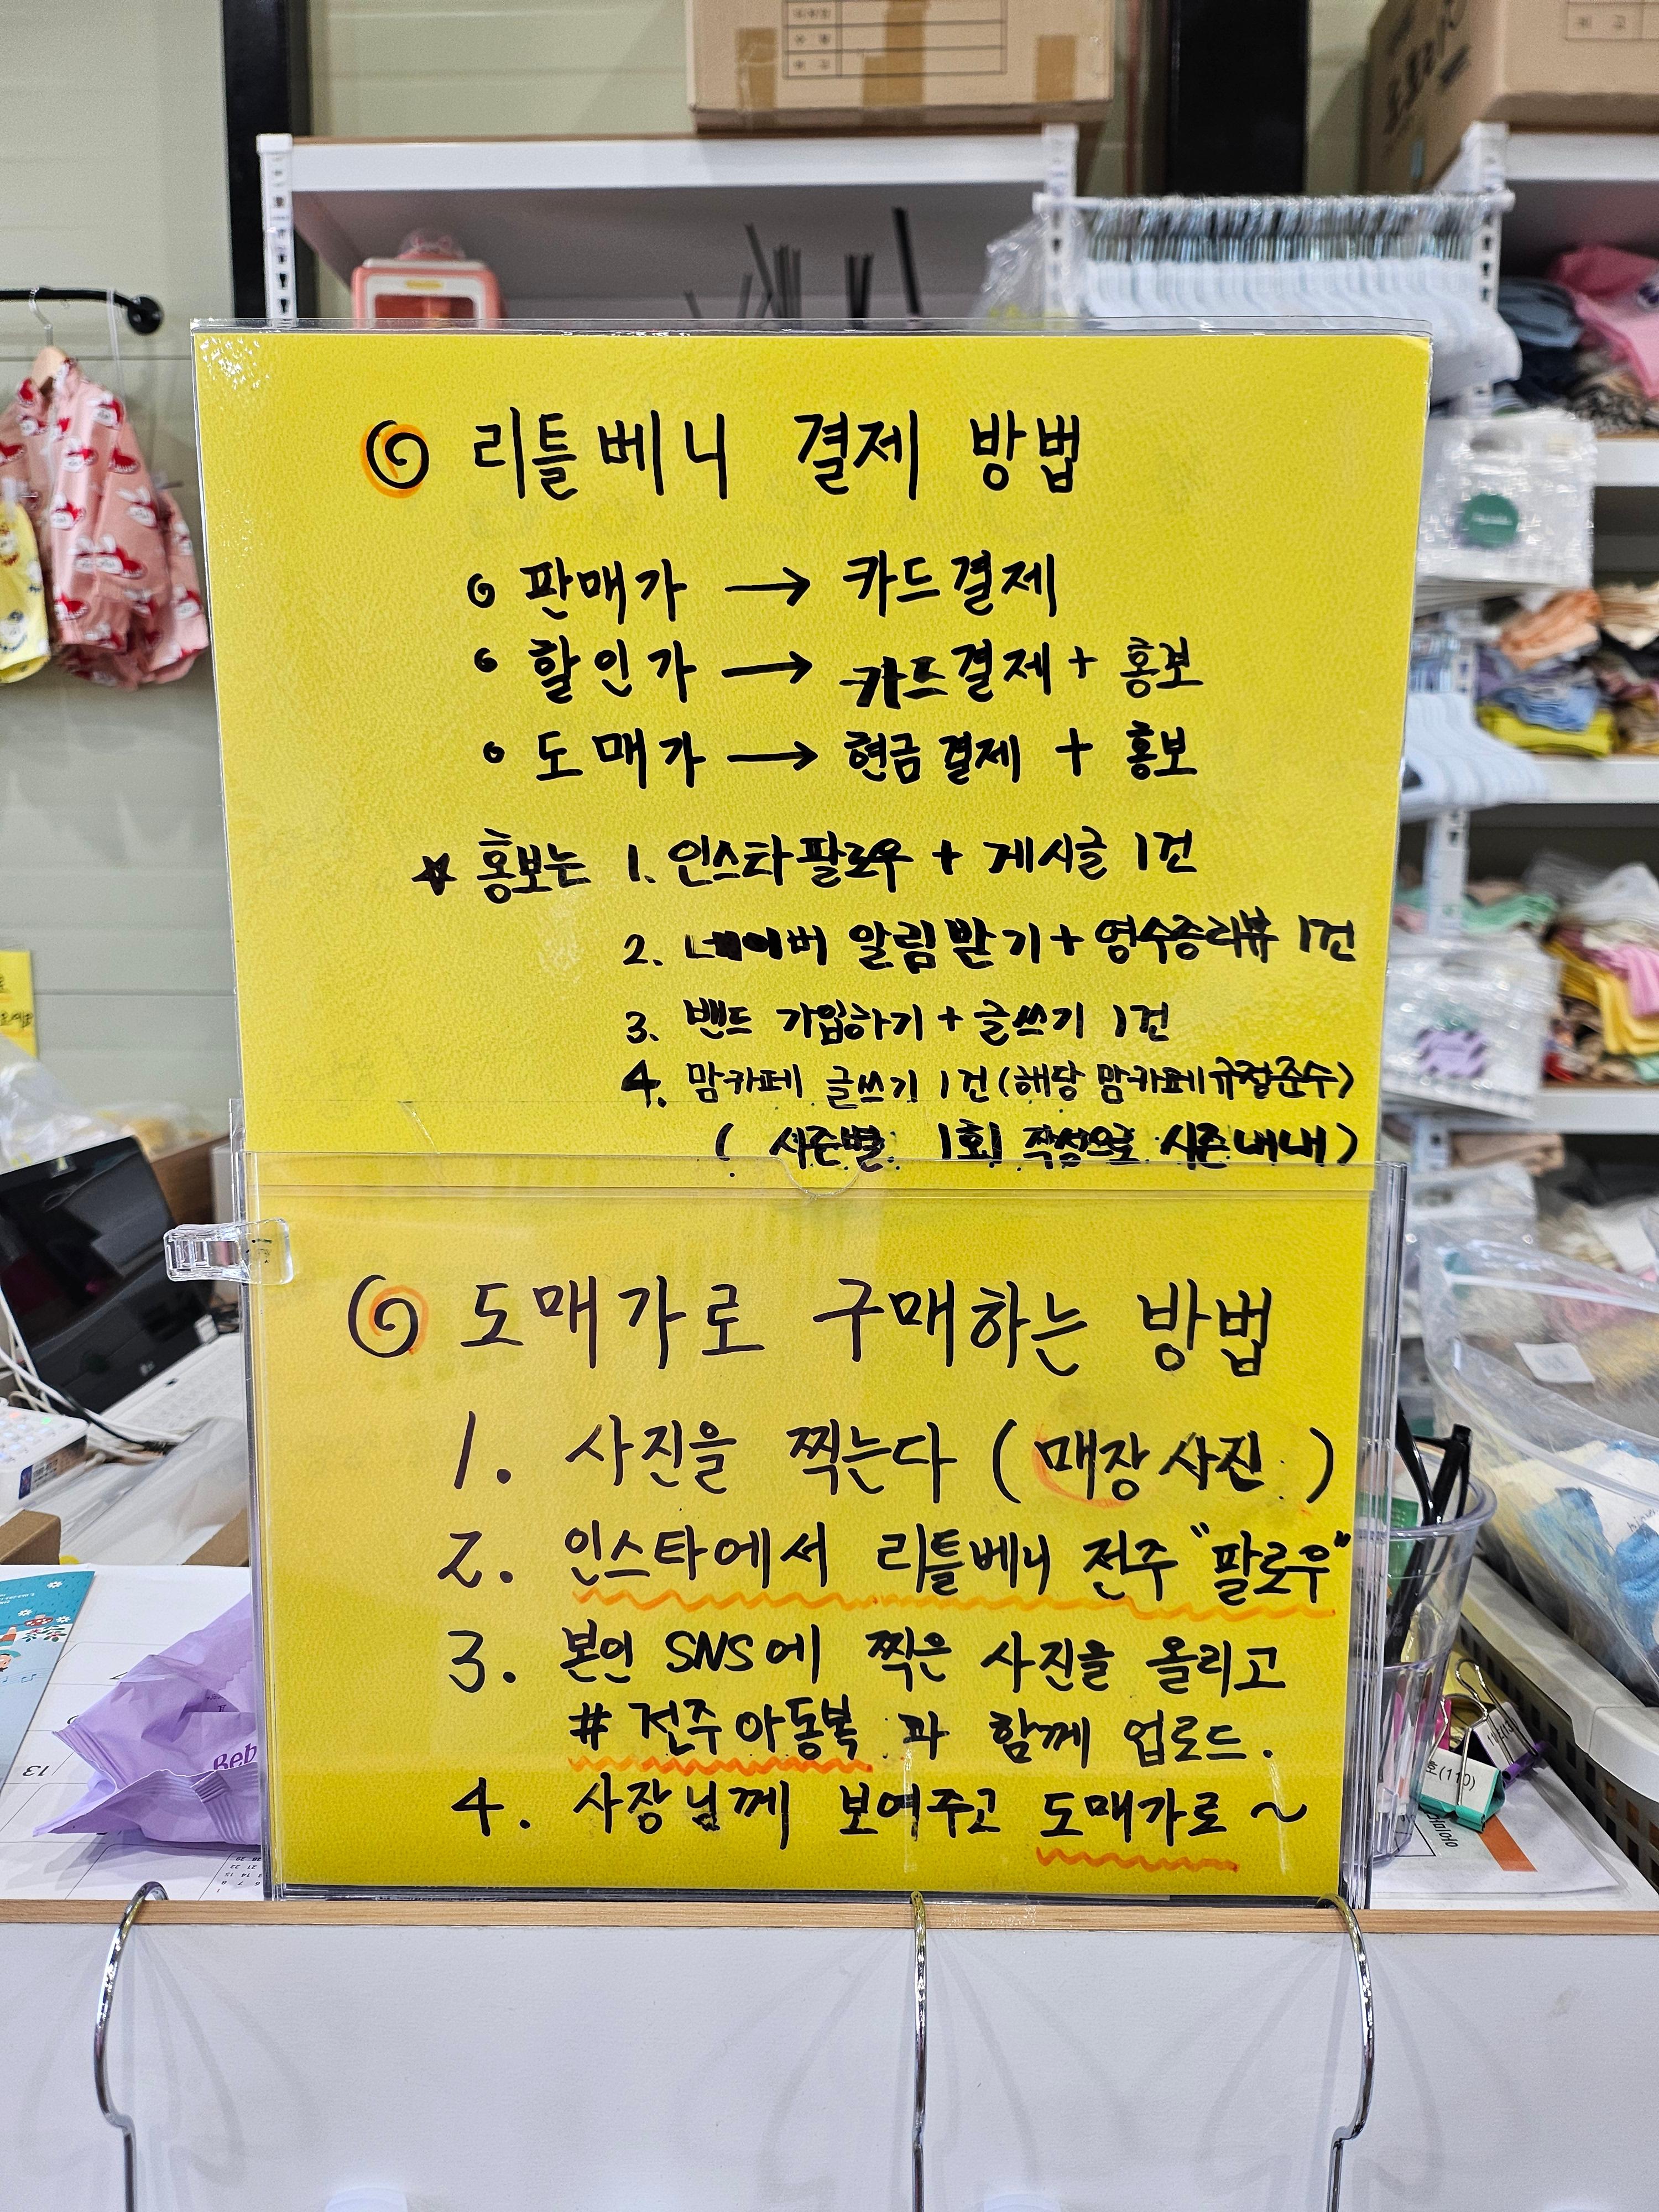 리틀베니 결제 방법
판매가 → 카드결제
할인가 → 카드결제 + 홍보
도매가 → 현금결제 + 홍보
☆ 홍보는 1. 인스타팔로우 + 게시글 1건
2. 네이버 알림받기 + 영수증리뷰 1건
3. 밴드 가입하기 + 글쓰기 1건
4. 맘카페 글쓰기 1건(해당 맘카페규정준수)
( 시즌별 1회 작성으로 시즌내내 )
도매가로 구매하는 방법
1. 사진을 찍는다 ( 매장사진 )
2. 인스타에서 리틀베니 전주 "팔로우"
3. 본인 SNS에 찍은 사진을 올리고
# 전주아동복 과 함께 업로드.
4. 사장님께 보여주고 도매가로 ~
13
호(110)